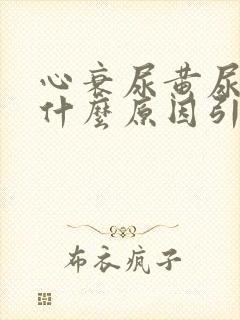 心衰尿黄尿
什麼原因引
布衣疯子